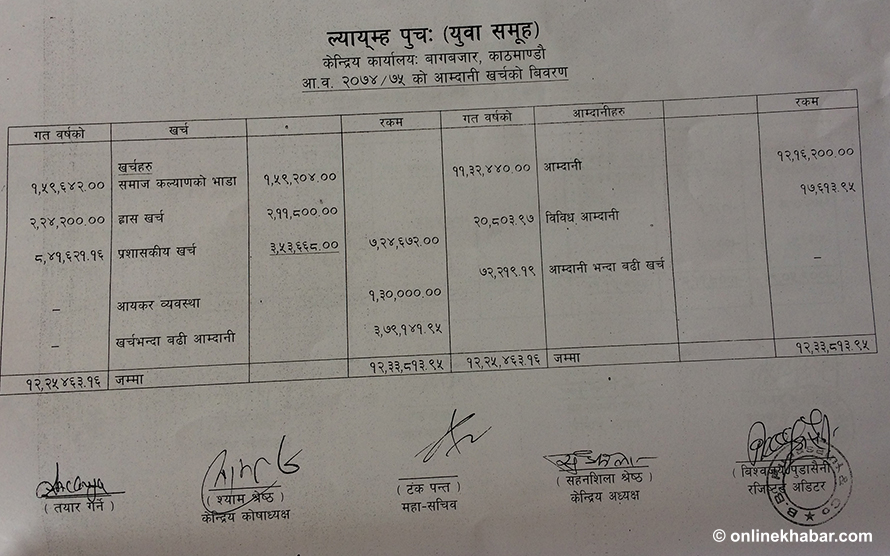 ल्याय्‌म्ह पुचः (युवा समूह)
केन्द्रिय कार्यालयः बागबजार, काठमाण्डौ
आ.व. २०७४/७५ को आम्दानी खर्चको बिवरण
गत वर्षको खर्च रकम गत वर्षको आम्दानीहरु रकम
खर्चहरु
१,५९,६४२.०० समाज कल्याणको भाडा १,५९,२०४.०० ११,३२,४४०.०० आम्दानी १२,१६,२००.००
२,२४,२००.०० ह्रास खर्च २,११,८००.०० २०,८०३.९७ विविध आम्दानी १७,६१३.९५
८,४१,६२१.१६ प्रशासकीय खर्च ३,५३,६६८.०० ७,२४,६७२.००
७२,२१९.१९ आम्दानी भन्दा बढी खर्च –
– आयकर व्यवस्था १,३०,०००.००
– खर्चभन्दा बढी आम्दानी ३,७९,१४१.९५
१२,२५४६३.१६ जम्मा १२,३३,८१३.९५ १२,२५,४६३.१६ जम्मा १२,३३,८१३.९५
( तयार गर्ने )
( श्याम श्रेष्ठ )
केन्द्रिय कोषाध्यक्ष
( टंक पन्त )
महा-सचिव
( सहनशिला श्रेष्ठ )
केन्द्रिय अध्यक्ष
पुडासैनी )
रजिष्टर्ड अडिटर
© onlinekhabar.com